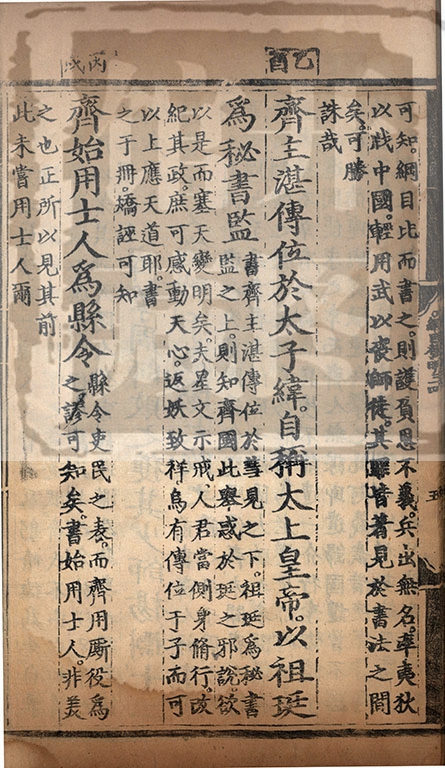 可知綱目比而書之則護負恩不義兵出無名率夷狄
以戕中國輕用武以喪師徒其罪皆著見於書法之間
矣可勝
誅哉
乙酉
齊主湛傳位於太子緯自稱太上皇帝以祖珽
為秘書監
書齊主湛傳位於彗見之下祖珽為秘書
監之上則知齊國此舉惑於珽之邪說欲
以是而塞天變明矣夫星文示戒人君當側身脩行改
紀其政庶可感動天心返妖致祥烏有傳位于子而可
以上應天道耶書
之于冊矯誣可知
丙戌
齊始用士人爲縣令
縣令吏民之表而齊用廝役爲
之謬可知矣書始用士人非美
之也正所以見其前
此未嘗用士人爾